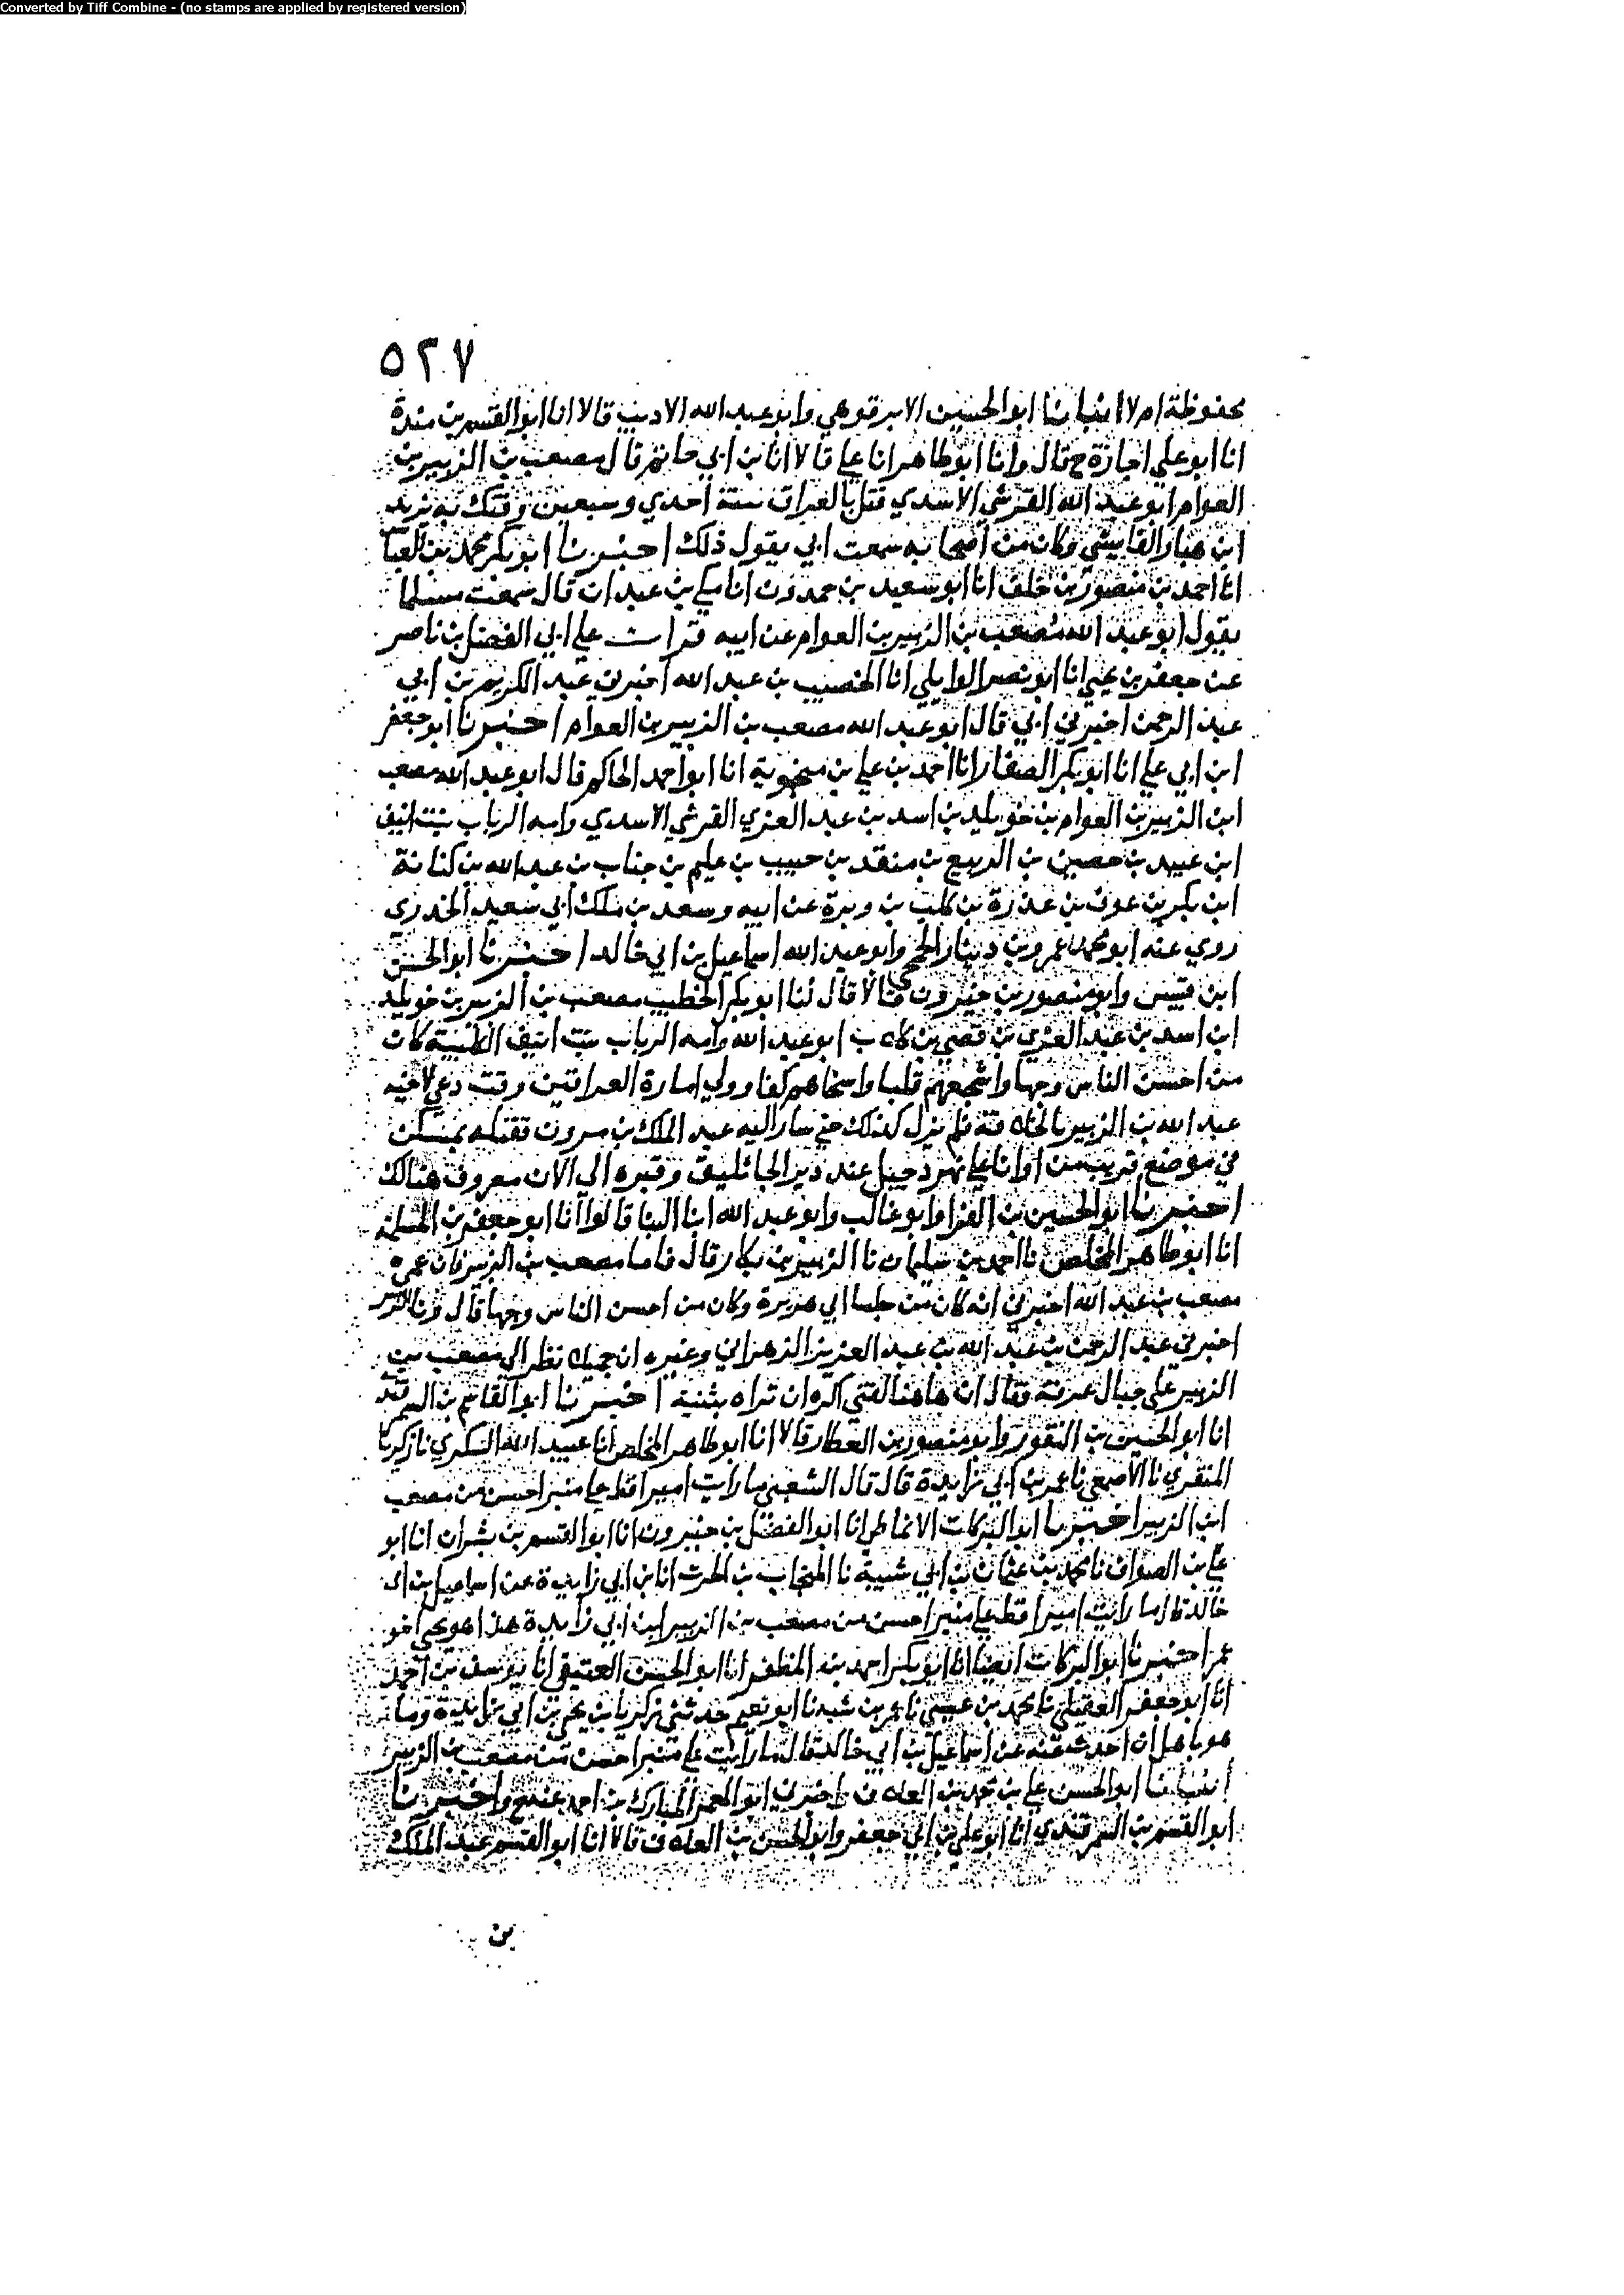 Converted by Tiff Combine - (no stamps are applied by registered version)
٥٢٧
محفوظة ام لا انبانا ابو الحسين الابرقوهي وابو عبد الله الاديب قالا انا ابو القسم بن مندة
انا ابو علي اجازة ح قال وانا ابو طاهر انا علي قالا انا بن ابي حاتم قال مصعب بن الزبير بن
العوام ابو عبد الله القرشي الاسدي قتل بالعراق سنة احدي وسبعين وقتك به يزيد
ابن هبار القابيشي وكان من اصحابه سمعت ابي يقول ذلك اخبرنا ابو بكر محمد بن العبا
انا احمد بن منصور بن خلف انا ابو سعيد بن حمدون انا مكي بن عبدان قال سمعت مسلما
يقول ابو عبد الله مصعب بن الزبير بن العوام عن ابيه قرات علي ابي الفضل بن ناصر
عن جعفر بن يحيي انا ابو نصر الوايلي انا الخصيب بن عبد الله اخبرني عبد الكريم بن ابي
عبد الرحمن اخبرني ابي قال ابو عبد الله مصعب بن الزبير بن العوام اخبرنا ابو جعفر
ابن ابي علي انا ابو بكر الصفار انا احمد بن علي بن منجوية انا ابو احمد الحاكم قال ابو عبد الله مصعب
ابن الزبير بن العوام بن خويلد بن اسد بن عبد العزي القرشي الاسدي وامه الرباب بنت انيف
ابن عبيد بن حصين بن الربيع بن منقد بن حبيب بن عليم بن جناب بن عبد الله بن كنانة
ابن بكر بن عوف بن عذرة بن كلب بن وبرة عن ابيه وسعد بن ملك ابي سعيد الخدري
روي عنه ابو محمد عمرو بن دينار الجمحي وابو عبد الله اسماعيل بن ابي خالد اخبرنا ابو الحسن
ابن قبيس وابو منصور بن خيرون قالا قال لنا ابو بكر الخطيب مصعب بن الزبير بن خويلد
ابن اسد بن عبد العزي بن قصي بن كلاب ابو عبد الله وامه الرباب بنت انيف الكلبية كان
من احسن الناس وجها واشجعهم قلبا واسخاهم كفا وولي امارة العراقين وقت دعي لاخيه
عبد الله بن الزبير بالخلافة فلم يزل كذلك حتي سار اليه عبد الملك بن مرون فقتله بمسكن
في موضع قريب من اوانا علي نهر دجيل عند دير الجاثليق وقبره الي الان معروف هنالك
اخبرنا ابو الحسين بن الفرا وابو غالب وابو عبد الله ابنا البنا قالوا انا ابو جعفر بن المسلمة
انا ابو طاهر المخلص نا احمد بن سليمان نا الزبير بن بكار قال فاما مصعب بن الزبير فان عمي
مصعب بن عبد الله اخبرني انه كان من جلسا ابي هريرة وكان من احسن الناس وجها قال ونا الزبير
اخبرني عبد الرحمن بن عبد الله بن عبد العزيز الزهراني وغيره ان جميلا نظر الي مصعب بن
الزبير علي جبال عرفة فقال ان هاهنا لفتي اكره ان تراه بثنية اخبرنا ابو القاسم بن السمرقند
انا ابو الحسين بن النقور وابو منصور بن العطار قالا انا ابو طاهر المخلص انا عبيد الله السكري نا زكريا
المنقري نا الاصمعي نا عمر بن ابي زايدة قال قال الشعبي ما رايت اميرا قط علي منبر احسن من مصعب
ابن الزبير اخبرنا ابو البركات الانماطي انا ابو الفضل بن خيرون انا ابو القسم بن بشران انا ابو
علي بن الصواف نا محمد بن عثمان بن ابي شيبة نا المنجاب بن الحرث انا بن ابي زايدة عن اسماعيل بن ابي
خالد قال ما رايت اميرا قط علي منبر احسن من مصعب بن الزبير ابن ابي زايدة هذا هو يحيي اخو
عمر اخبرنا ابو البركات ايضا انا ابو بكر احمد بن المظفر انا ابو الحسن العتيقي انا يوسف بن احمد
انا ابو جعفر العقيلي نا محمد بن عيسي نا عمر بن شبه نا ابو نعيم حدثني زكريا بن يحيي بن ابي زايدة وما
هو باهل ان احدث عنه عن اسماعيل بن ابي خالد قال ما رايت علي منبر احسن من مصعب بن الزبير
انبانا ابو الحسن علي بن محمد بن العلاف اخبرني ابو المعمر المبارك بن احمد عنه ح واخبرنا
ابو القسم بن السمرقندي انا ابو علي بن ابي جعفر وابو الحسن بن العلاف قالا انا ابو القسم عبد الملك
بن